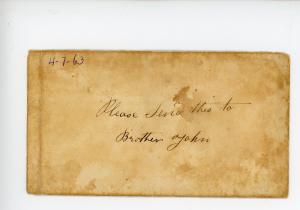 4-7-63
Please Send this to
Brother John